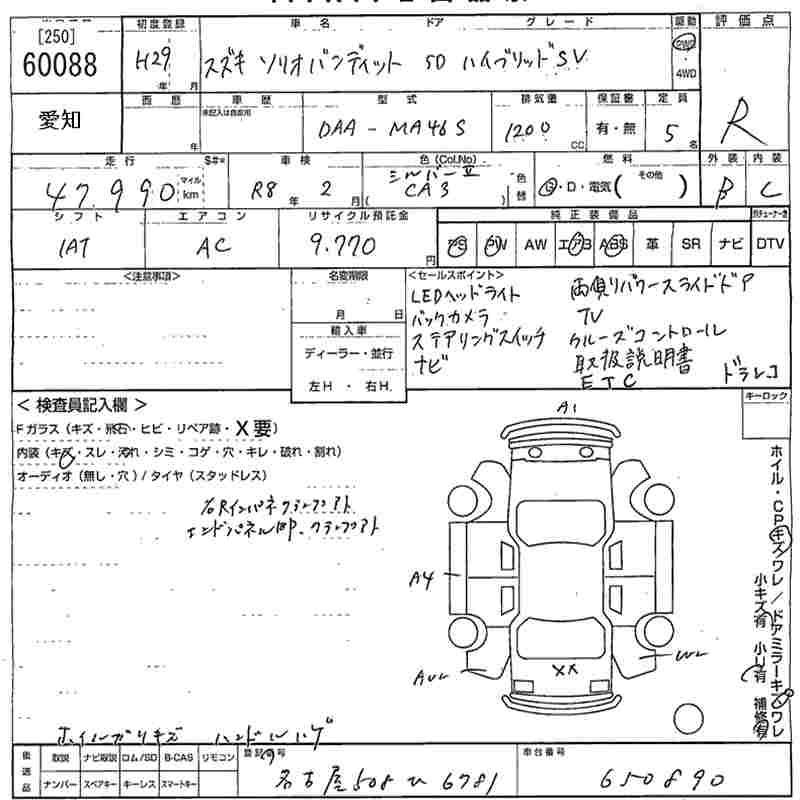 [250]
60088
愛知
初度登録 車名 ドア グレード 駆動 評価点
H29 年 月 スズキ ソリオバンディット 5D ハイブリッドSV 2WD 4WD R
西暦 車歴 型式 排気量 保証書 定員
年 未記入は自家用 DAA-MA46S 1200 CC 有・無 5 名
走行 S#* 車検 色(Col.No) 色替 燃料 外装 内装
47,990 マイル km R8 年 2 月 シルバーII ( CA3 ) G・D・電気( その他 ) B C
シフト エアコン リサイクル預託金 純正装備品
IAT AC 9,770 円 PS PW AW エアB ABS 革 SR ナビ DTV
<注意事項>
名変期限
月 日
輸入車
ディーラー・並行
左H・右H.
<セールスポイント>
LEDヘッドライト 両側パワースライドドア
バックカメラ TV
ステアリングスイッチ クルーズコントロール
ナビ 取扱説明書
ETC ドラレコ
キーロック
<検査員記入欄>
Fガラス(キズ・飛石・ヒビ・リペア跡・X要)
内装(キズ・スレ・汚れ・シミ・コゲ・穴・キレ・破れ・割れ)
オーディオ(無し・穴)/タイヤ(スタッドレス)
エンドパネルUP.
A1
A4
XX
ホイル・CPキズワレ/ドアミラーキズワレ
小キズ有 小U有 補修有
ホイルガリキズ ハンドルハゲ
後送品 取説 ナビ取説 ロム/SD B-CAS リモコン
ナンバー スペアキー キーレス スマートキー
登録番号
名古屋508 ひ 6781
車台番号
650890